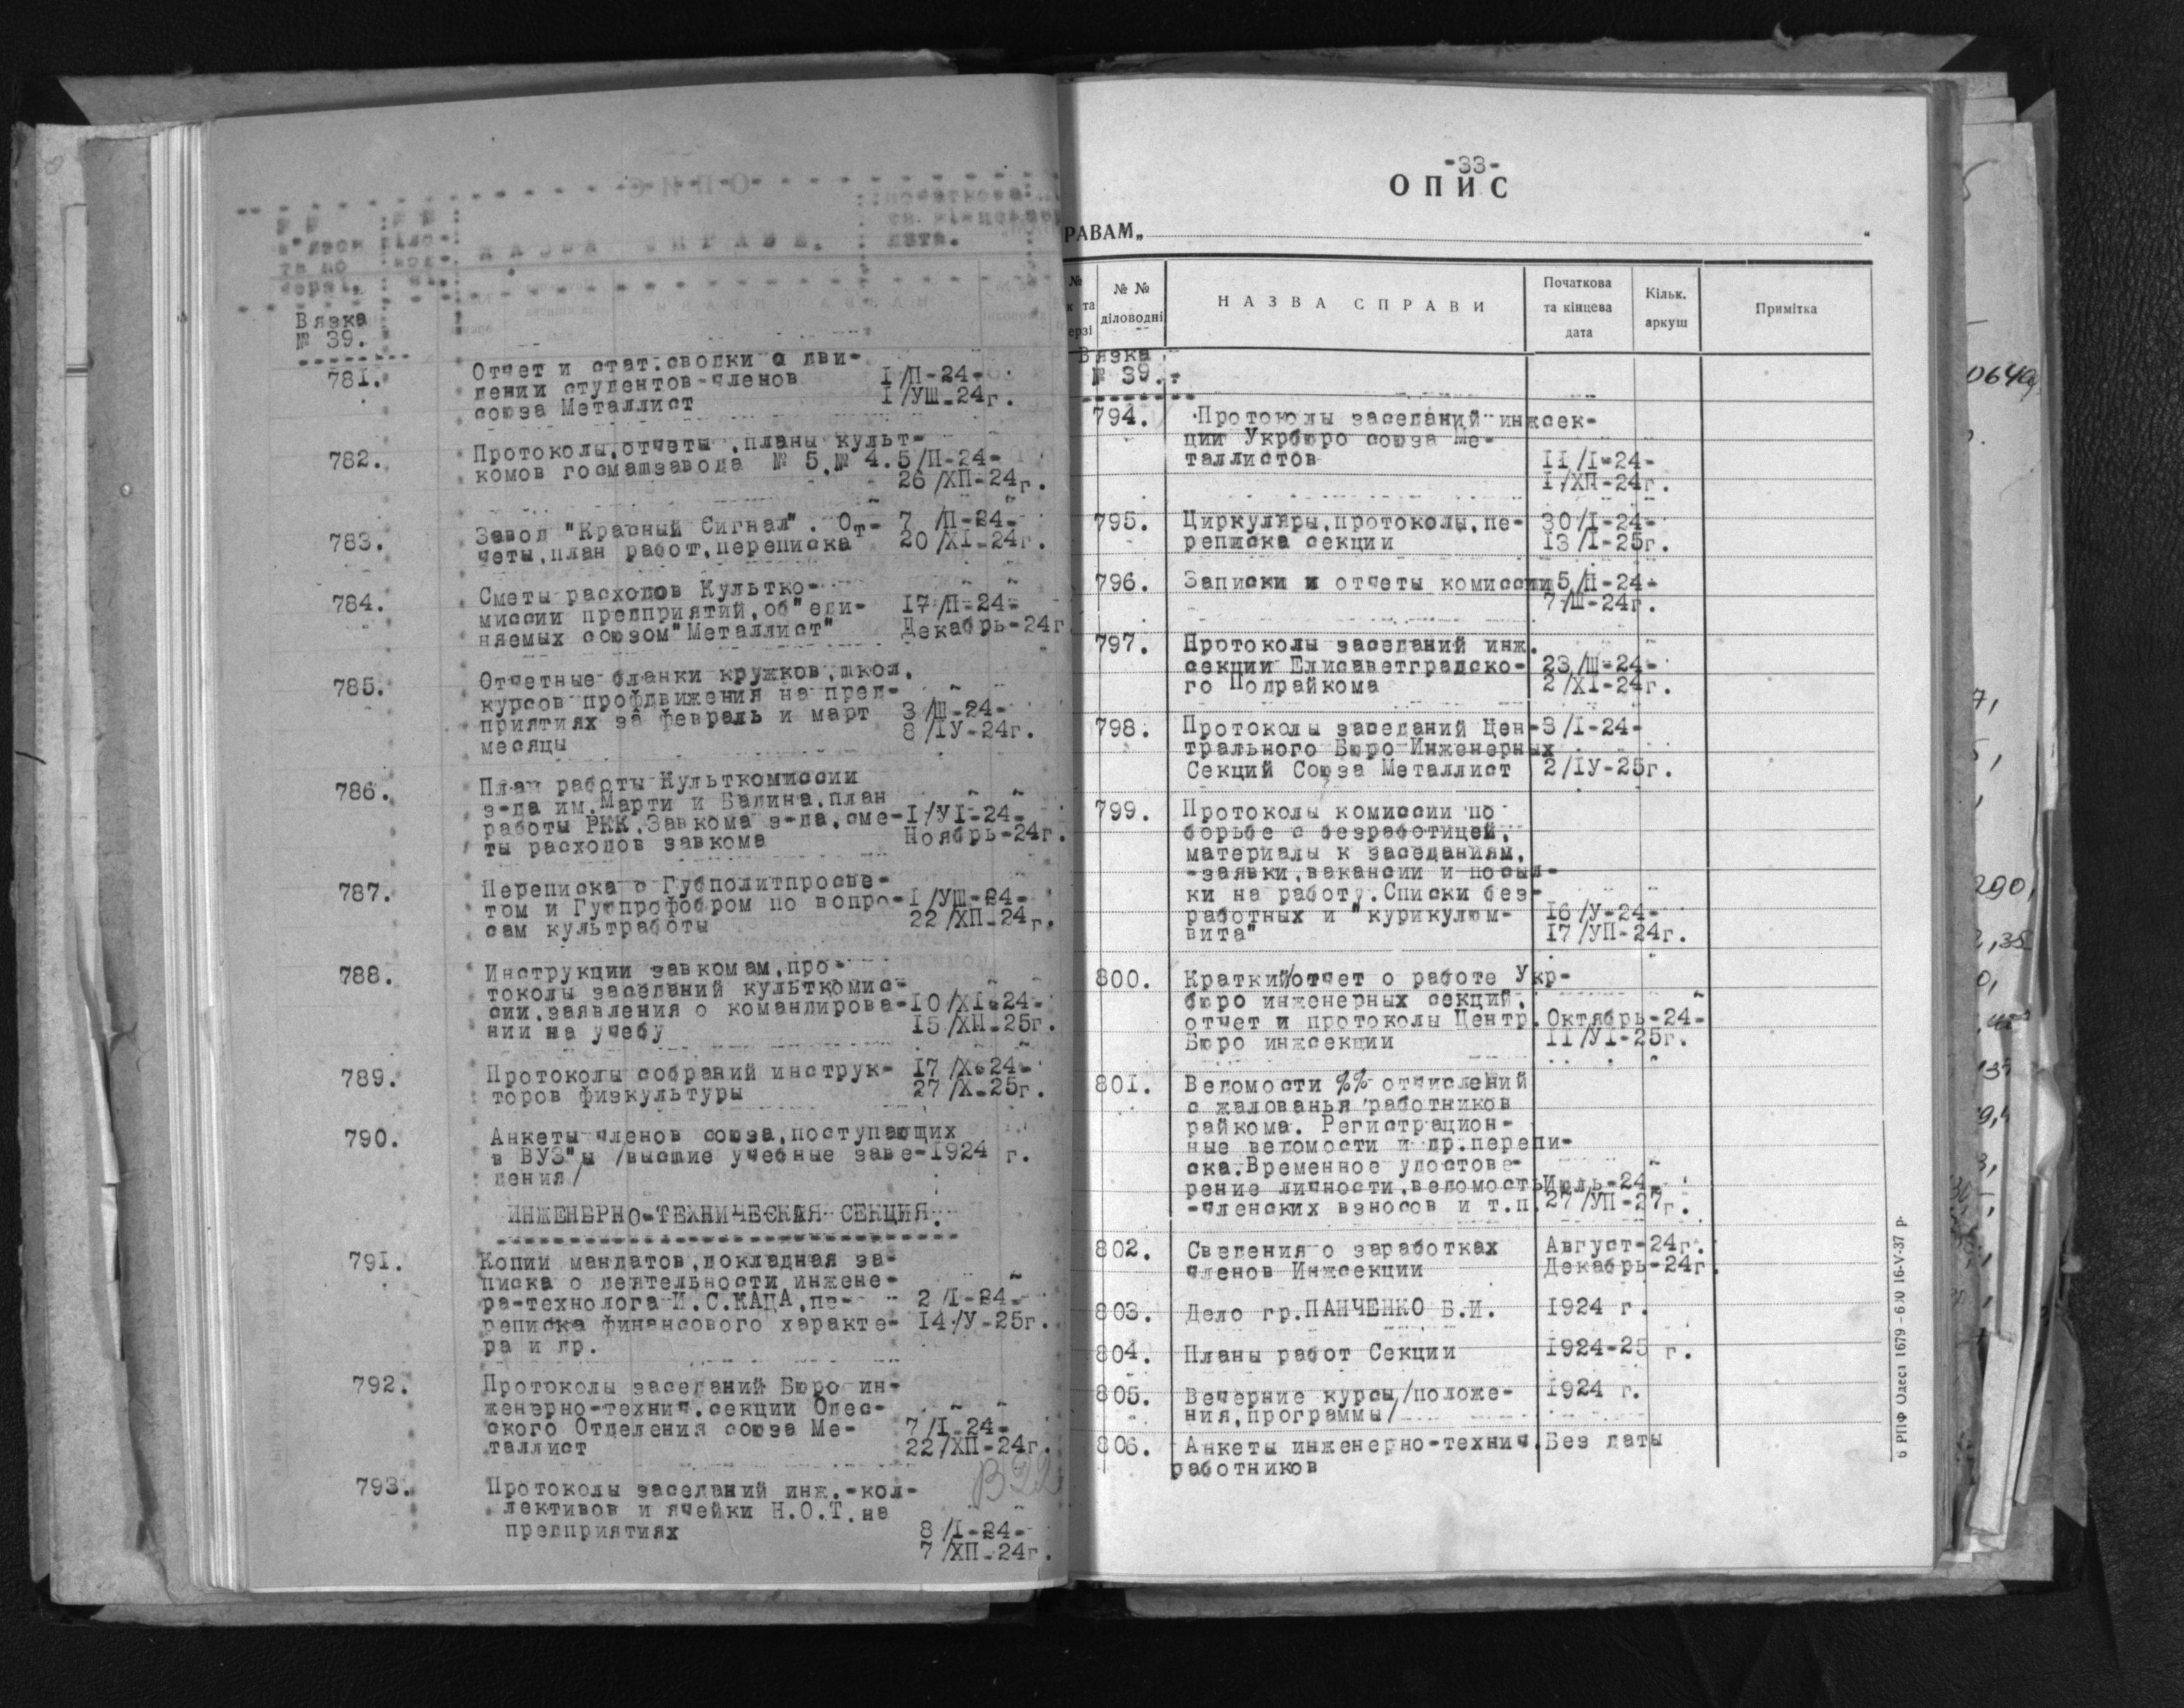 № №
в"язки
та по
черзі.
№ №
діло-
вод-
ні.
НАЗВА СПРАВИ.
Початкова
та кінцева
дата.
Вязка
№ 39.
781.
Отчет и стат.сводки о дви-
жении студентов-членов
союза Металлист
1/П-24-
1/УШ-24г.
782.
Протоколы,отчеты,планы культ-
комов госмашзавода № 5,№ 4.
5/П-24-
26/ХП-24г.
783.
Завод "Красный Сигнал". От-
четы,план работ,переписка
7/П-24-
20/XI-24г.
784.
Сметы расходов Культко-
миссии предприятий,об"еди-
няемых союзом"Металлист"
17/П-24-
Декабрь-24г
785.
Отчетные бланки кружков,школ,
курсов профдвижения на пред-
приятиях за февраль и март
месяцы
3/Ш-24-
8/IУ-24г.
786.
План работы Культкомиссии
з-да им.Марти и Бадина,план
работы РКК,Завкома з-да,сме-
ты расходов завкома
1/УI-24-
Ноябрь-24г.
787.
Переписка с Губполитпросве-
том и Губпрофобром по вопро-
сам культработы
1/УШ-24-
22/ХП-24г.
788.
Инструкции завкомам,про-
токолы заседаний культкомис-
сии,заявления о командирова-
нии на учебу
10/XI-24-
15/ХП-25г.
789.
Протоколы собраний инструк-
торов физкультуры
17/X-24-
27/X-25г.
790.
Анкеты членов союза,поступающих
в ВУЗ"ы /высшие учебные заве-
дения/
1924 г.
ИНЖЕНЕРНО-ТЕХНИЧЕСКАЯ СЕКЦИЯ.
791.
Копии мандатов,докладная за-
писка о деятельности инжене-
ра-технолога И.С.КАЦА,пе-
реписка финансового характе-
ра и др.
2/I-24-
14/У-25г.
792.
Протоколы заседаний Бюро ин-
женерно-технич.секции Одес-
ского Отделения союза Ме-
таллист
7/I-24-
22/ХП-24г.
В22
793.
Протоколы заседаний инж.-кол-
лективов и ячейки Н.О.Т.на
предприятиях
8/I-24-
7/ХП-24г.
-33-
ОПИС
РАВАМ„
“
№
к та
ерзі
№ №
діловодні
НАЗВА СПРАВИ
Початкова
та кінцева
дата
Кільк.
аркуш
Примітка
Вязка
№ 39.
794.
Протоколы заседаний инжсек-
ции Укрбюро союза Ме-
таллистов
11/I-24-
1/ХП-24г.
795.
Циркуляры,протоколы,пе-
реписка секции
30/I-24-
13/I-25г.
796.
Записки и отчеты комиссии
5/П-24-
7/Ш-24г.
797.
Протоколы заседаний инж.
секции Елисаветградско-
го Подрайкома
23/Ш-24-
2/XI-24г.
798.
Протоколы заседаний Цен-
трального Бюро Инженерных
Секций Союза Металлист
3/I-24-
2/IУ-25г.
799.
Протоколы комиссии по
борьбе с безработицей,
материалы к заседаниям,
-заявки,вакансии и посыл-
ки на работу.Списки без-
работных и "курикулюм-
вита"
16/У-24-
17/УП-24г.
800.
Краткий/отчет о работе Укр-
бюро инженерных секций,
отчет и протоколы Центр.
Бюро инжсекции
Октябрь-24-
11/УI-25г.
801.
Ведомости %% отчислений
с жалованья работников
райкома. Регистрацион-
ные ведомости и др.перепи-
ска.Временное удостове-
рение личности,ведомость
-членских взносов и т.п.
Июль-24-
27/УП-27г.
802.
Сведения о заработках
членов Инжсекции
Август-24г.
Декабрь-24г.
803.
Дело гр.ПАНЧЕНКО Б.И.
1924 г.
804.
Планы работ Секции
1924-25 г.
805.
Вечерние курсы/положе-
ния,программы/
1924 г.
806.
Анкеты инженерно-технич.
работников
Без даты
6 РПФ Одеса 1679 – 600 16-V-37 р.